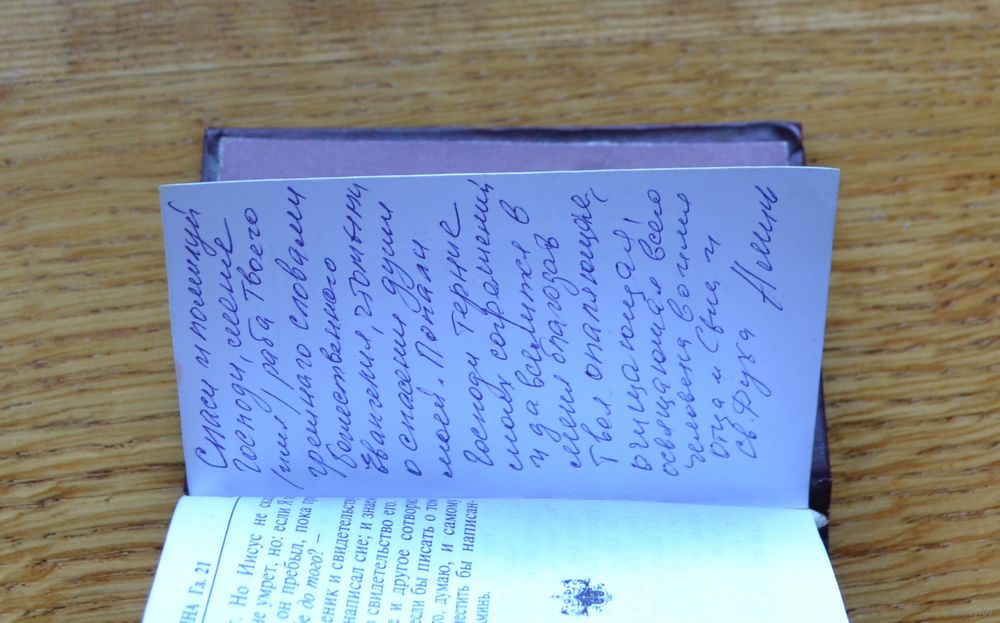 Спаси и помилуй
Господи, мене
/имя/ раба твоего
грешнаго словами
Божественного
Евангелия, чтомыми
о спасении души
моей. Попали
Господи терние
моих согрешений
и да вселится в
меня благодать
Твоя опаляющая,
очищающая
освящающая всего
человека во имя
отца и Сына и
св. Духа Аминь
НА Гл. 21
Но Иисус не
не умрет, но: если Я
он пребыл, пока
до того? –
и свидетельст
написал сие; и знае
свидетельство его.
и другое сотвори
если бы писать о
то, думаю, и самому
местить бы написан-
аминь.